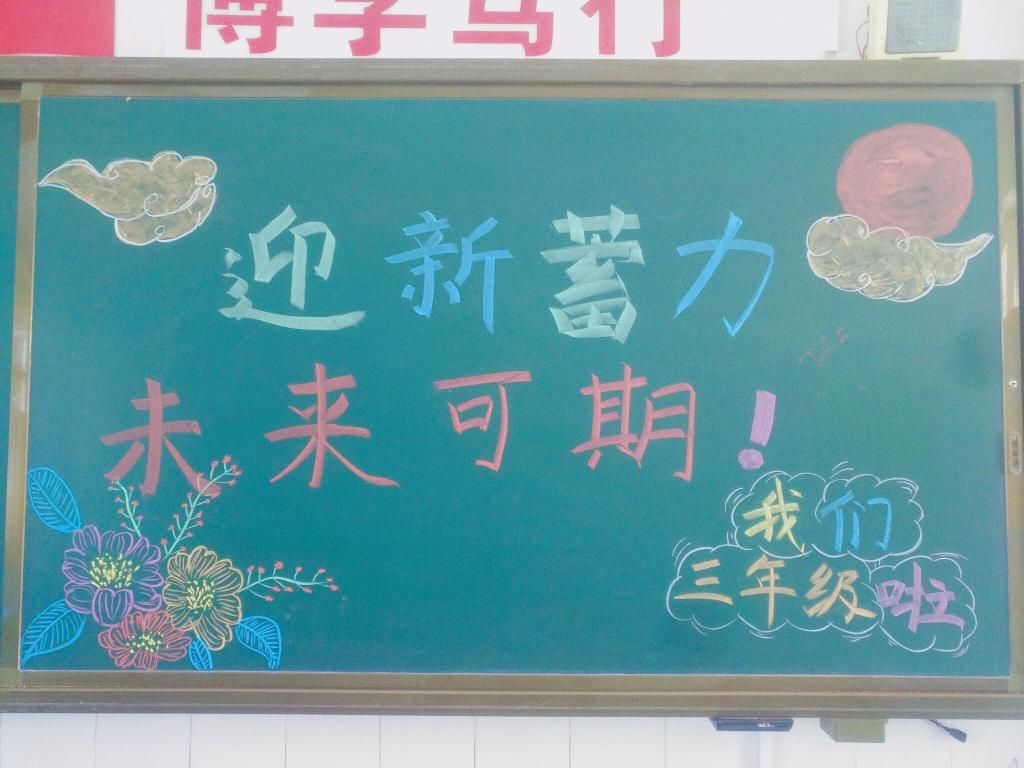 博学笃行
迎新蓄力
未来可期！
我们
三年级啦